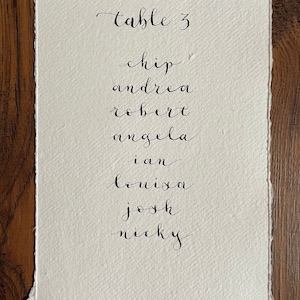 table 3
chip
andrea
robert
angela
ian
louisa
josh
nicky